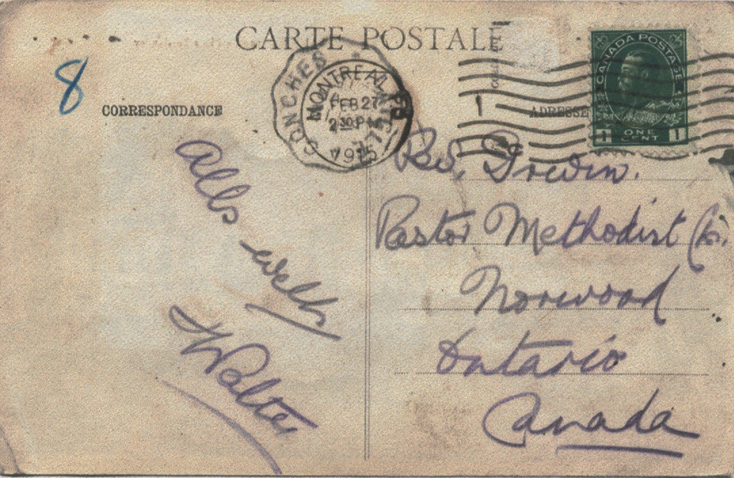 CARTE POSTALE
8
CORRESPONDANCE
ADRESSE
CONCHES
MONTREAL
FEB 27
2 30 PM
1915
CANADA POSTAGE
1 ONE CENT 1
Alls well
Walter
Rev. Drewin.
Pastor Methodist Ch.
Norwood
Ontario
Canada